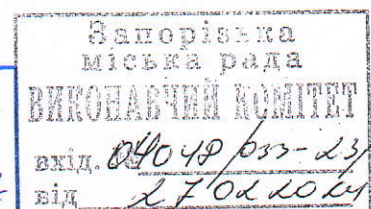 Запорізька
міська рада
ВИКОНАВЧИЙ КОМІТЕТ
вхід. № 04048/033-23/
від 27 02 20 24